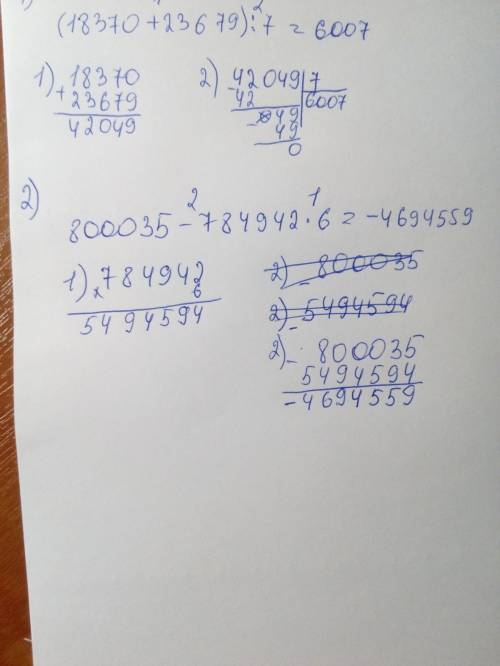 (18370 + 23679) : 7 = 6007
1) 18370
+ 23679
42049
2) 42049 | 7
- 42 6007
- 049
49
0
2)
2 1
800035 - 784942 · 6 = -4694559
1) 784942
x 6
5494594
2) - 800035
2) - 5494594
2) - 800035
5494594
-4694559